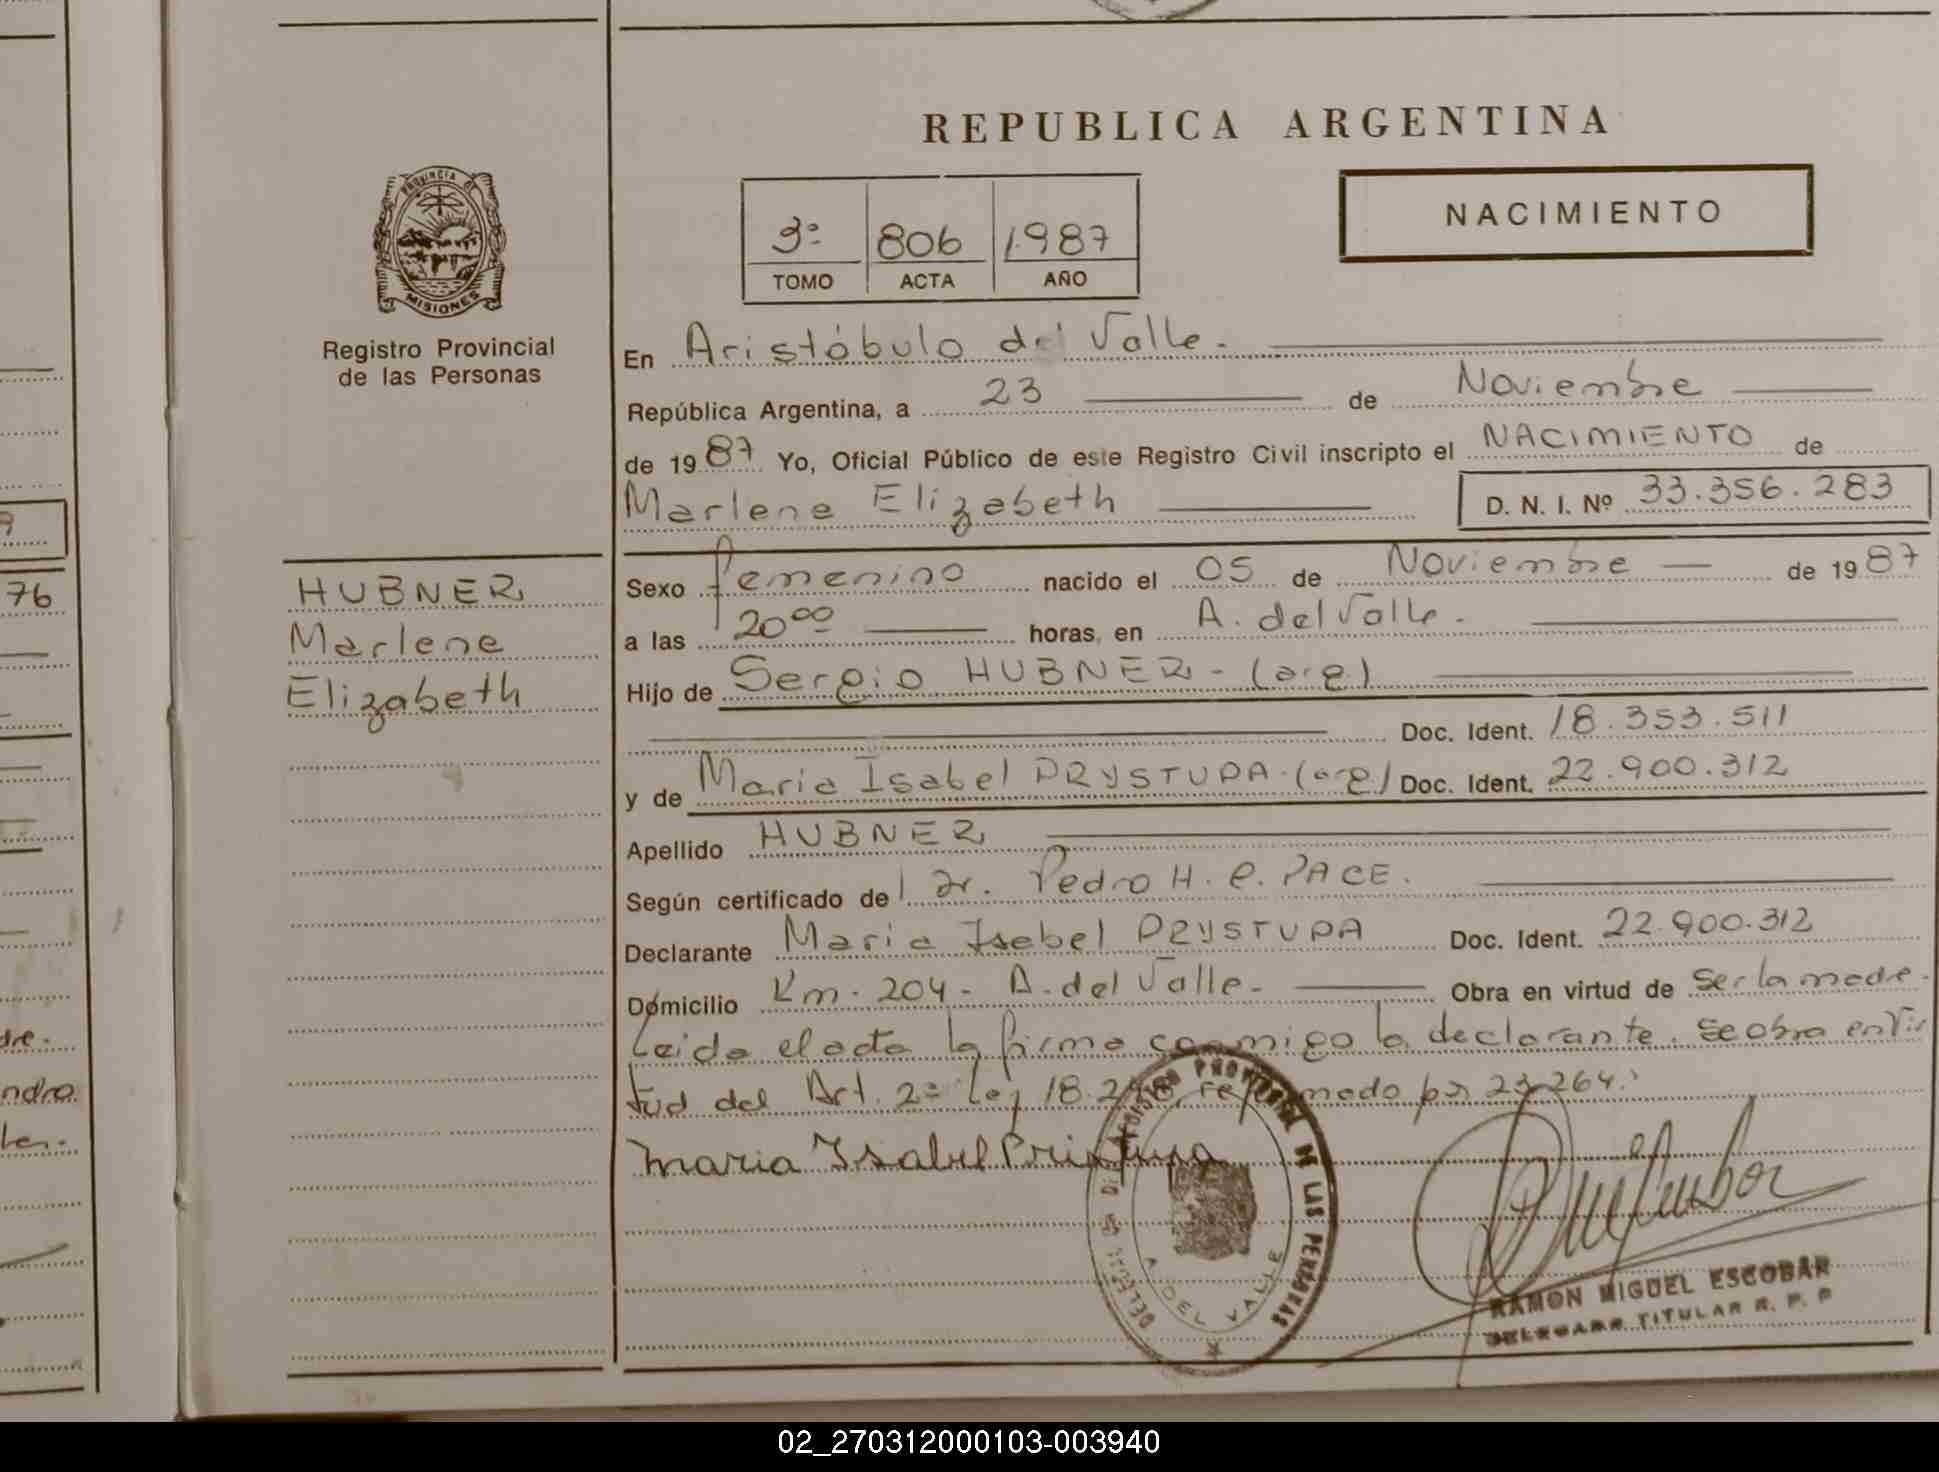 REPUBLICA ARGENTINA
NACIMIENTO
3º 806 1987
TOMO ACTA AÑO
PROVINCIA DE
MISIONES
Registro Provincial
de las Personas
En Aristóbulo del Valle.
República Argentina, a 23 de Noviembre
de 1987 Yo, Oficial Público de este Registro Civil inscripto el NACIMIENTO de
Marlene Elizabeth D. N. I. Nº 33.356.283
HUBNER
Marlene
Elizabeth
Sexo femenino nacido el 05 de Noviembre de 1987
a las 20⁰⁰ horas, en A. del Valle.
Hijo de Sergio HUBNER - (arg)
Doc. Ident. 18.353.511
y de Maria Isabel PRYSTUPA - (arg) Doc. Ident. 22.900.312
Apellido HUBNER
Según certificado del Dr. Pedro H. C. PACE.
Declarante Maria Isabel PRYSTUPA Doc. Ident. 22.900.312
Domicilio Km. 204 - A. del Valle. Obra en virtud de ser la madre.
Leida el acta la firma conmigo la declarante. Se obra en vir
tud del Art. 2º Ley 18.248, reformado por 23.264.
Maria Isabel
PROVINCIAL DE LAS PERSONAS
A. DEL VALLE
RAMON MIGUEL ESCOBAR
DELEGADO TITULAR R. P. P
9
76
dre.
ndro
02_270312000103-003940